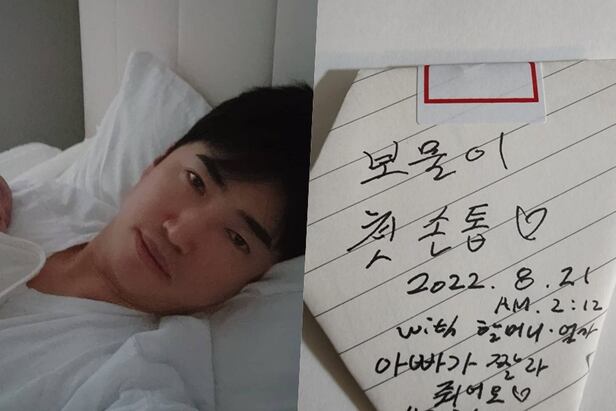 보물이
첫 손톱♡
2022. 8. 21
AM. 2:12
with 할머니·엄마
아빠가 짤라
줘어요♡